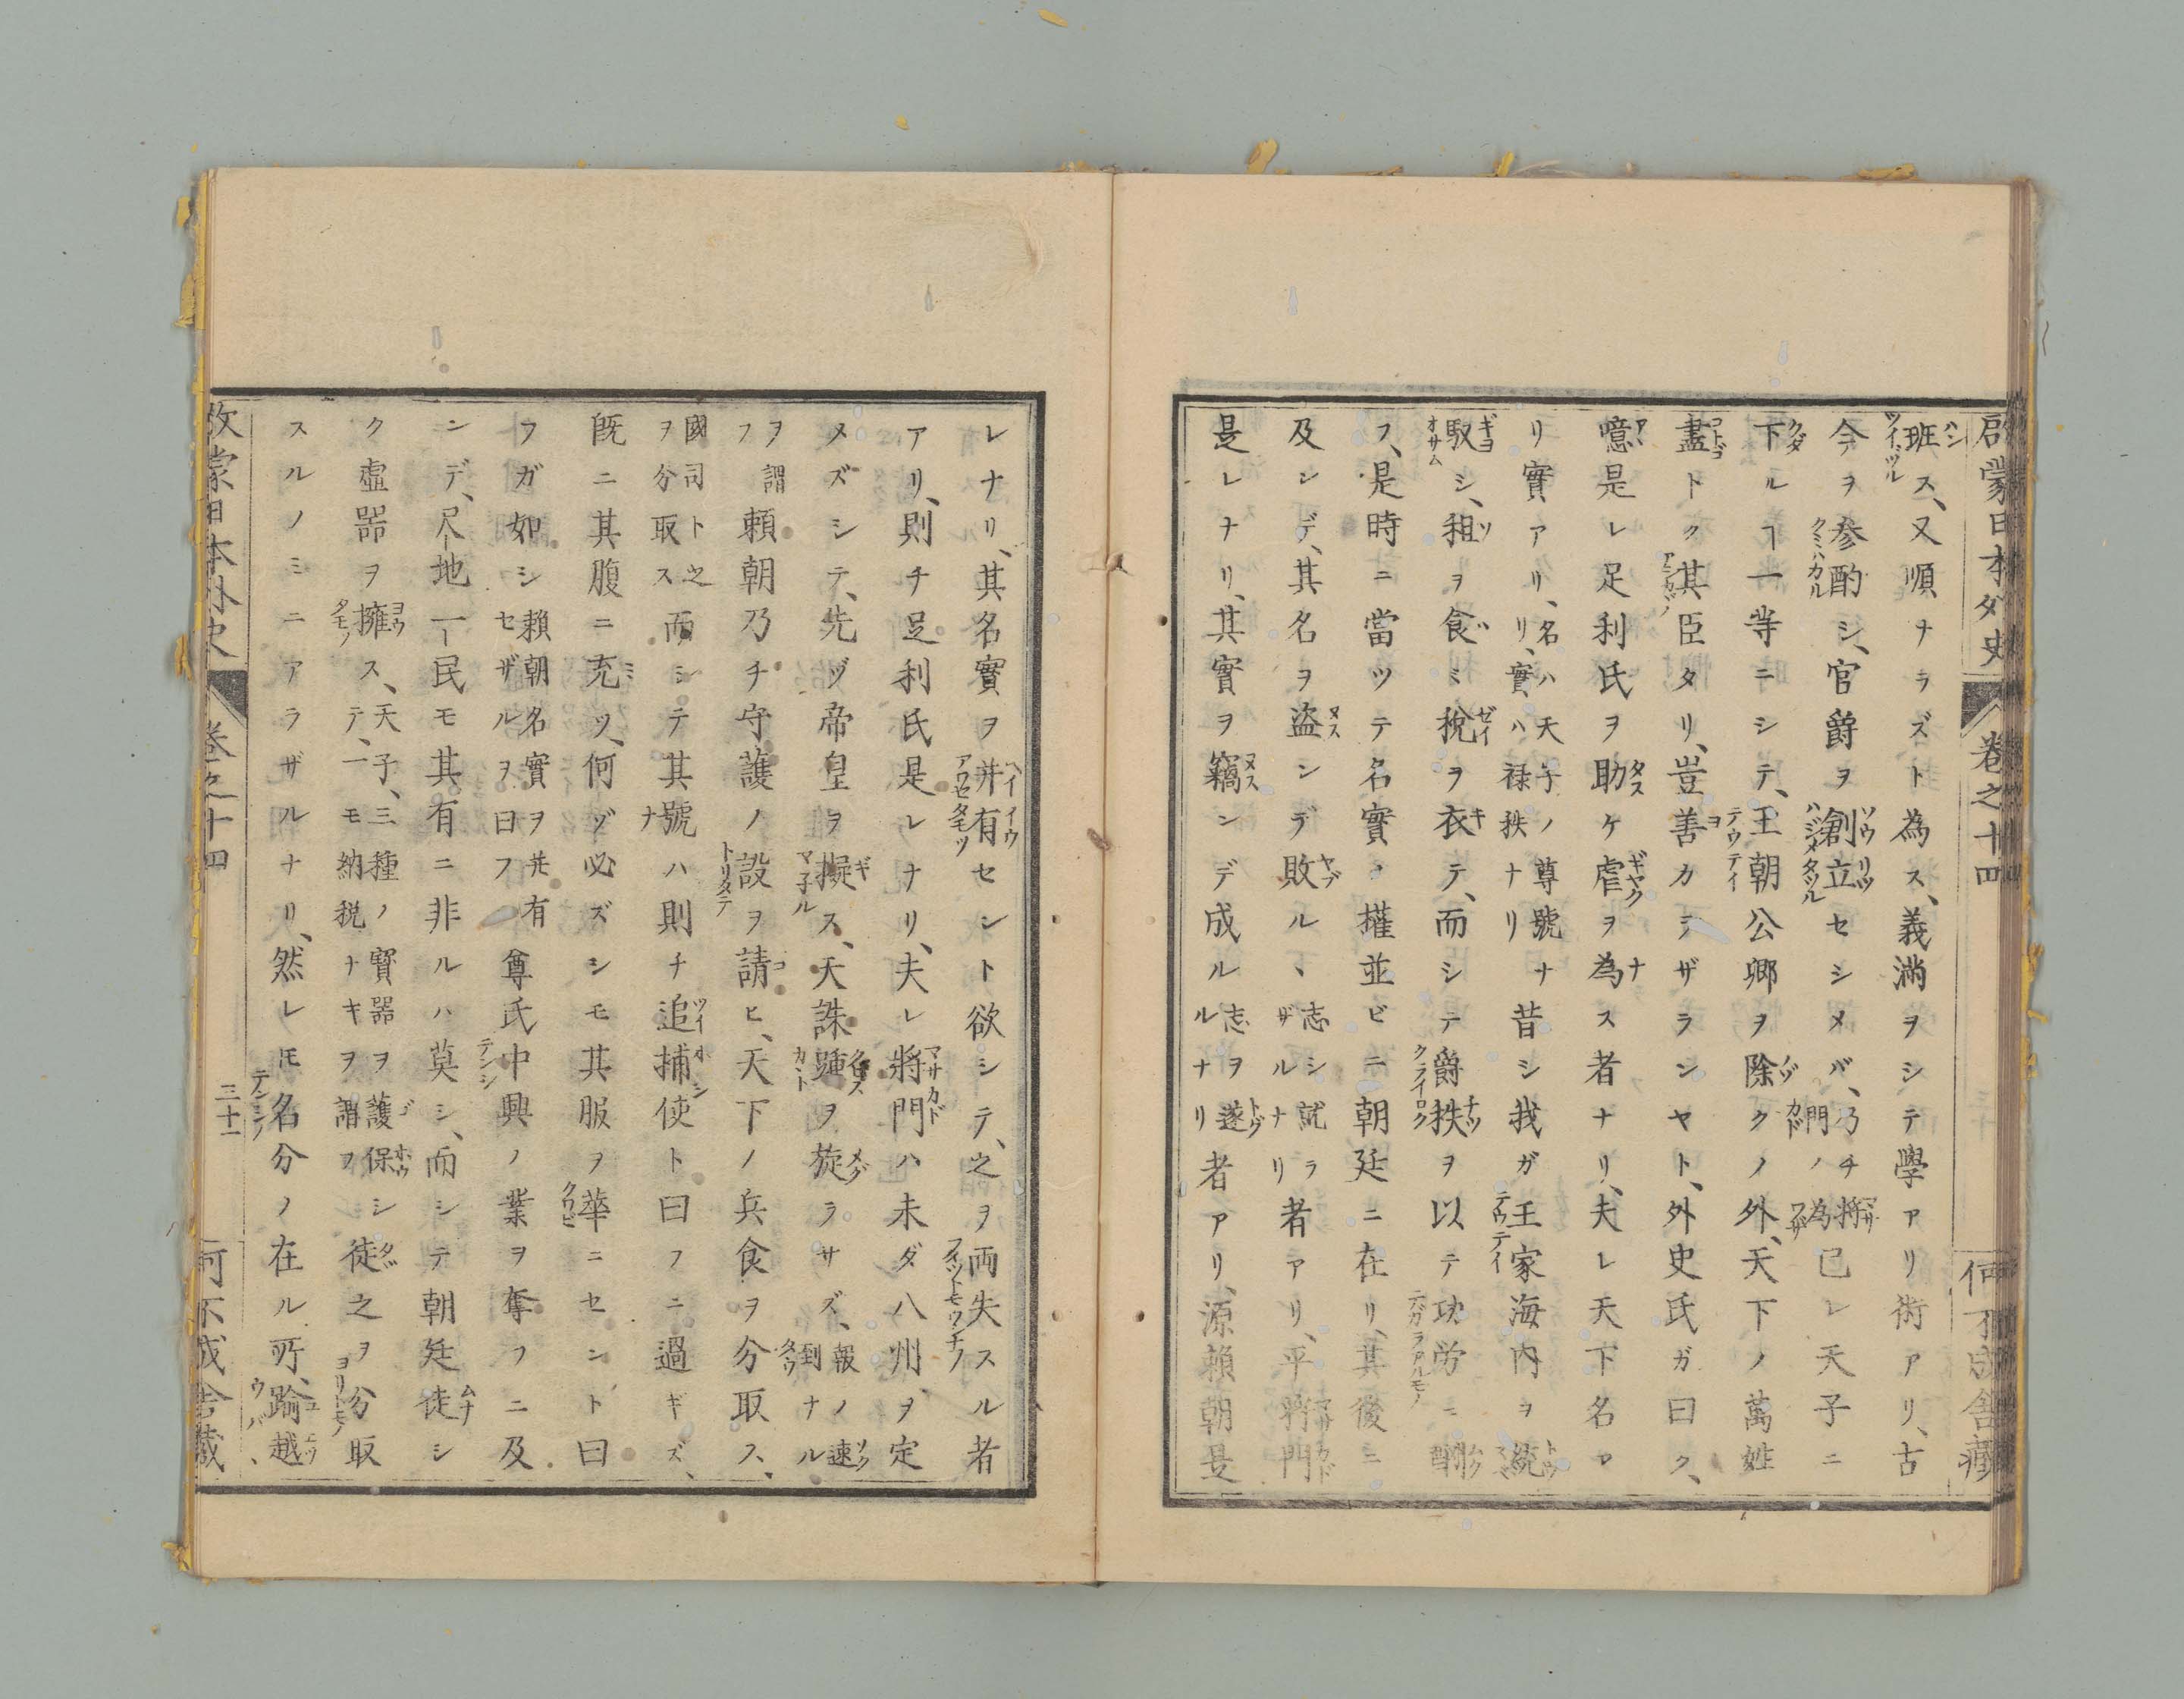 啓蒙日本外史 卷之十四 何不成舎藏
班ス、又順ナラズト為ス、義滿ヲシテ學アリ術アリ、古
今ヲ參酌シ、官爵ヲ創立セシメバ、乃チ將門ノ為己レ天子ニ
下ルヿ一等ニシテ、王朝公卿ヲ除クノ外、天下ノ萬姓
盡トク其臣タリ、豈善カラザランヤト、外史氏ガ曰ク、
噫是レ足利氏ヲ助ケ虐ヲ為ス者ナリ、夫レ天下名ア
リ實アリ、名ハ天子ノ尊號ナリ、實ハ禄秩ナリ昔シ我ガ王家海内ヲ統
馭シ、租ヲ食ミ税ヲ衣テ、而シテ爵秩ヲ以テ功労ニ酬
フ、是時ニ當ツテ名實ノ權並ビニ朝廷ニ在リ、其後ニ
及ンデ、其名ヲ盗ンデ敗ルヽ志シ就ラザルナリ者アリ、平將門
是レナリ、其實ヲ竊ンデ成ルル志ヲ遂ルナリ者アリ、源頼朝是
レナリ、其名實ヲ并有セシト欲シテ、之ヲ両失スル者
アリ、則チ足利氏是レナリ、夫レ將門ハ未ダ八州ヲ定
メズシテ、先ヅ帝皇ヲ擬ス、天誅踵ヲ旋ラサズ、報ノ速到ナル
ヲ謂フ頼朝乃チ守護ノ設ヲ請ヒ、天下ノ兵食ヲ分取ス、
國司ト之ヲ分取ス而シテ其號ハ則チ追捕使ト曰フニ過ギズ、
既ニ其腹ニ充ツ、何ゾ必ズシモ其服ヲ華ニセシト曰
フガ如シ頼朝名實ヲ并有セザルヲ曰フ尊氏中興ノ業ヲ奪フニ及
ンデ、尺地一民モ其有ニ非ルハ莫シ、而シテ朝廷徒シ
ク虚器ヲ擁ス、天子、三種ノ寳器ヲ護保シテ、一モ納税ナキヲ謂フ徒之ヲ分取
スルノミニアラザルナリ、然レモ名分ノ在ル所、踰越
啓蒙日本外史 卷之十四 三十一 何不成舎藏